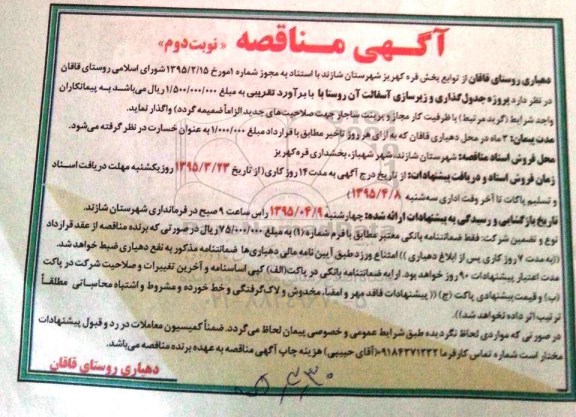 آگهی مناقصه « نوبت دوم»
دهیاری روستای قاقان از توابع بخش قره کهریز شهرستان شازند با استناد به مجوز شماره ۱مورخ ۱۳۹۵/۲/۱۵ شورای اسلامی روستای قاقان
در نظر دارد پروژه جدول گذاری و زیرسازی آسفالت آن روستا با برآورد تقریبی به مبلغ ۱/۵۰۰/۰۰۰/۰۰۰ ریال می‌باشد به پیمانکاران
واجد شرایط (گرید مرتبط) با ظرفیت کار مجاز و پرینت ساجار جهت صلاحیت‌های جدید الزاماً ضمیمه گردد) واگذار نماید.
مدت پیمان: ۳ ماه در محل دهیاری قاقان که به ازای هر روز تاخیر مطابق با قرارداد مبلغ ۱/۰۰۰/۰۰۰ به عنوان خسارت در نظر گرفته می‌شود.
محل فروش اسناد مناقصه: شهرستان شازند، شهر شهباز، بخشداری قره‌کهریز
زمان فروش اسناد و دریافت پیشنهادات: از تاریخ درج آگهی به مدت ۱۴ روز کاری( از تاریخ ۱۳۹۵/۳/۲۳ روز یکشنبه مهلت دریافت اسناد
و تسلیم پاکات تا آخر وقت اداری سه‌شنبه ۱۳۹۵/۴/۸)
تاریخ بازگشایی و رسیدگی به پیشنهادات ارائه شده: چهارشنبه ۱۳۹۵/۰۴/۹ راس ساعت ۹ صبح در فرمانداری شهرستان شازند.
نوع و تضمین شرکت: فقط ضمانتنامه بانکی معتبر مطابق با فرم شماره(۱) به مبلغ ۷۵/۰۰۰/۰۰۰ ریال در صورتی که برنده مناقصه از عقد قرارداد
((به مدت ۷ روز کاری پس از ابلاغ دهیاری )) امتناع ورزد طبق آیین نامه مالی دهیاری‌ها ضمانتنامه مذکور به نفع دهیاری ضبط خواهد شد.
مدت اعتبار پیشنهادات ۹۰ روز خواهد بود. ارایه ضمانتنامه بانکی در پاکت(الف) کپی اساسنامه و آخرین تغییرات و صلاحیت شرکت در پاکت
(ب) و قیمت پیشنهادی پاکت (ج) (( پیشنهادات فاقد مهر و امضا، مخدوش و لاک گرفتگی و خط خورده و مشروط و اشتباه محاسباتی مطلقاً
ترتیب اثر داده نخواهد شد)).
در صورتی که مواردی لحاظ نگردیده طبق شرایط عمومی و خصوصی پیمان لحاظ می‌گردد. ضمناً کمیسیون معاملات در رد و قبول پیشنهادات
مختار است شماره تماس کارفرما ۰۹۱۸۴۳۷۱۲۳۲(آقای حبیبی) هزینه چاپ آگهی مناقصه به عهده برنده مناقصه می‌باشد.
دهیاری روستای قاقان